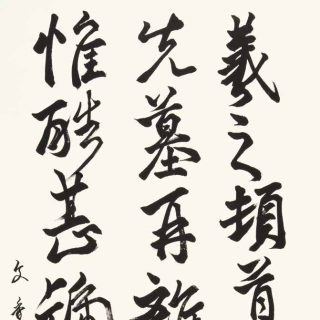 羲之頓首
先墓再離
惟酷甚號
文